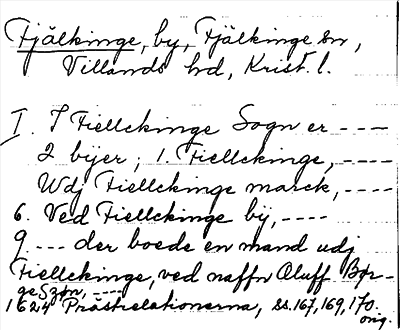 Fjälkinge, by, Fjälkinge sn,
Villands hd, Krist. l.
I. I Fiellckinge Sogn er ----
2 bÿer; 1. Fiellckinge, ----
Wdj Fiellckinge marck, ----
6. Ved Fiellckinge bÿ, ----
9. --- der boede en mand udj
Fiellckinge, ved naffn Aluff Bør-
geSzøn, ----
1624 Prästrelationerna, ss. 167, 169, 170.
orig.